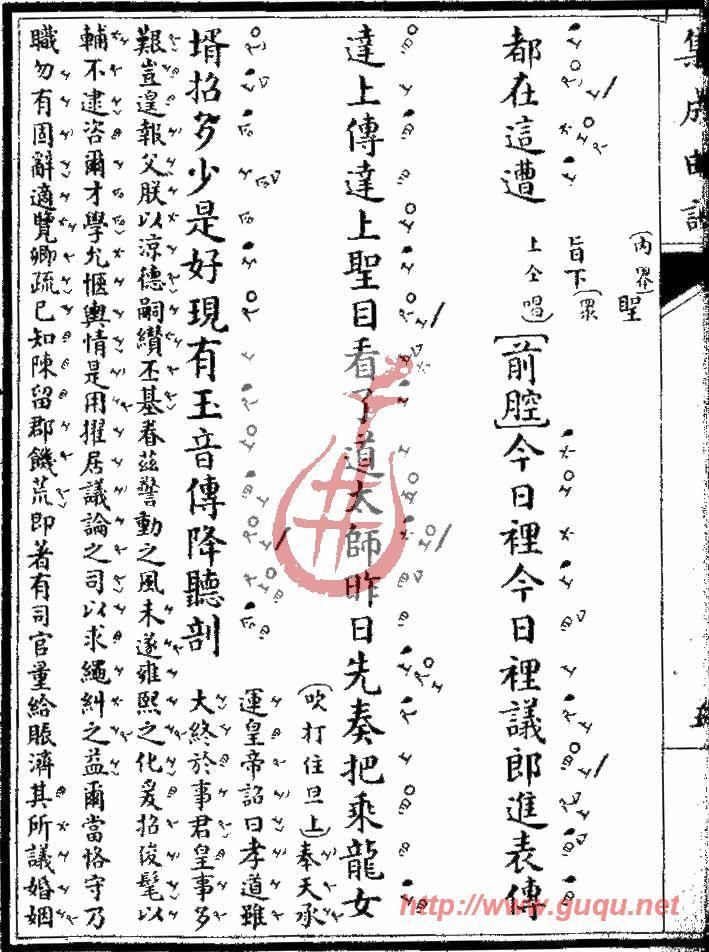 集成曲譜
都在這遭
(內界)聖
旨下(眾
上仝唱)
[前腔]今日裡今日裡議郎進表傳
達上傳達上聖目看了道太師昨日先奏把乘龍女
壻招多少是好現有玉音傳降聽剖
(吹打住旦上)奉天承
運皇帝詔曰孝道雖
大終於事君皇事多
艱豈遑報父朕以涼德嗣纘丕基眷茲警動之風未遂雍熙之化爰招俊髦以
輔不逮咨爾才學允愜輿情是用擢居議論之司以求繩糾之益爾當恪守乃
職勿有固辭適覽卿疏已知陳留郡饑荒即著有司官量給賑濟其所議婚姻
http://www.guqu.net